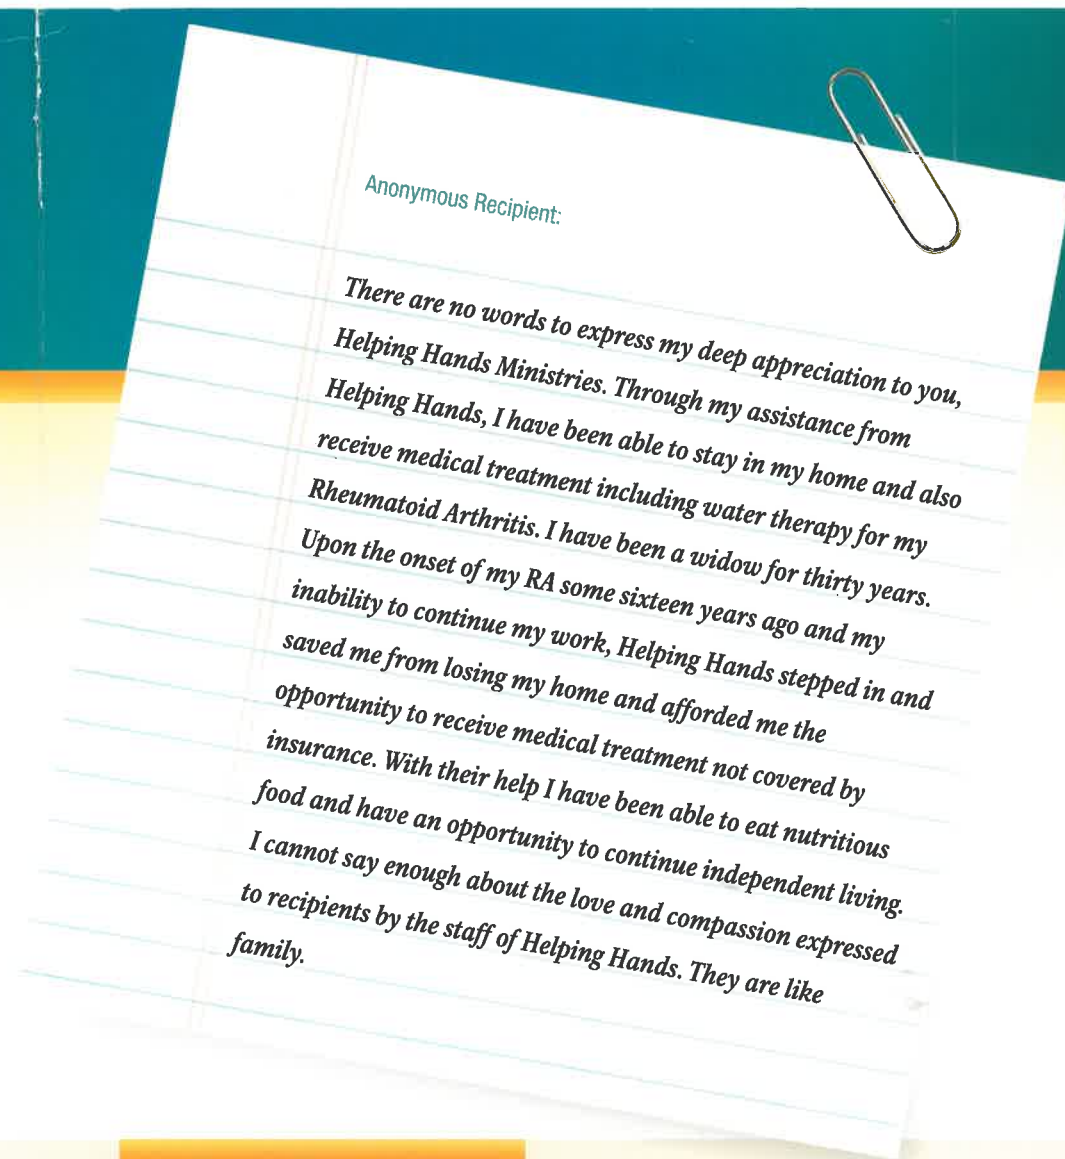 Anonymous Recipient:
There are no words to express my deep appreciation to you,
Helping Hands Ministries. Through my assistance from
Helping Hands, I have been able to stay in my home and also
receive medical treatment including water therapy for my
Rheumatoid Arthritis. I have been a widow for thirty years.
Upon the onset of my RA some sixteen years ago and my
inability to continue my work, Helping Hands stepped in and
saved me from losing my home and afforded me the
opportunity to receive medical treatment not covered by
insurance. With their help I have been able to eat nutritious
food and have an opportunity to continue independent living.
I cannot say enough about the love and compassion expressed
to recipients by the staff of Helping Hands. They are like
family.